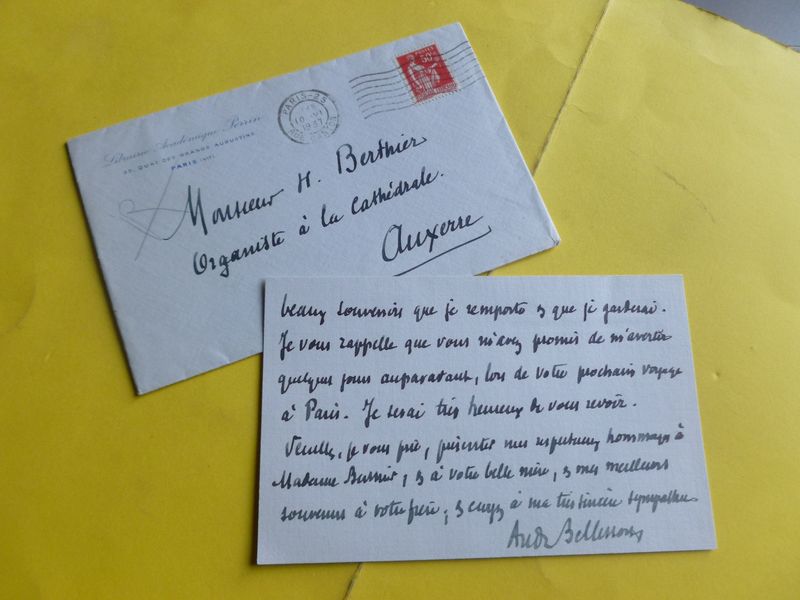 Librairie Académique Perrin
35, QUAI DES GRANDS AUGUSTINS
PARIS (VIe)
PARIS-25
10
1937
RUE DANTON
POSTES
50c
Monsieur H. Berthier
Organiste à la Cathédrale.
Auxerre
beaux souvenirs que je remporte & que je garderai.
Je vous rappelle que vous m'avez promis de m'avertir
quelques jours auparavant, lors de votre prochain voyage
à Paris. Je serai très heureux de vous revoir.
Veuillez, je vous prie, présenter mes respectueux hommages à
Madame Berthier, & à votre belle mère, & mes meilleurs
souvenirs à votre frère, & croyez à ma très sincère sympathie
André Bellessort